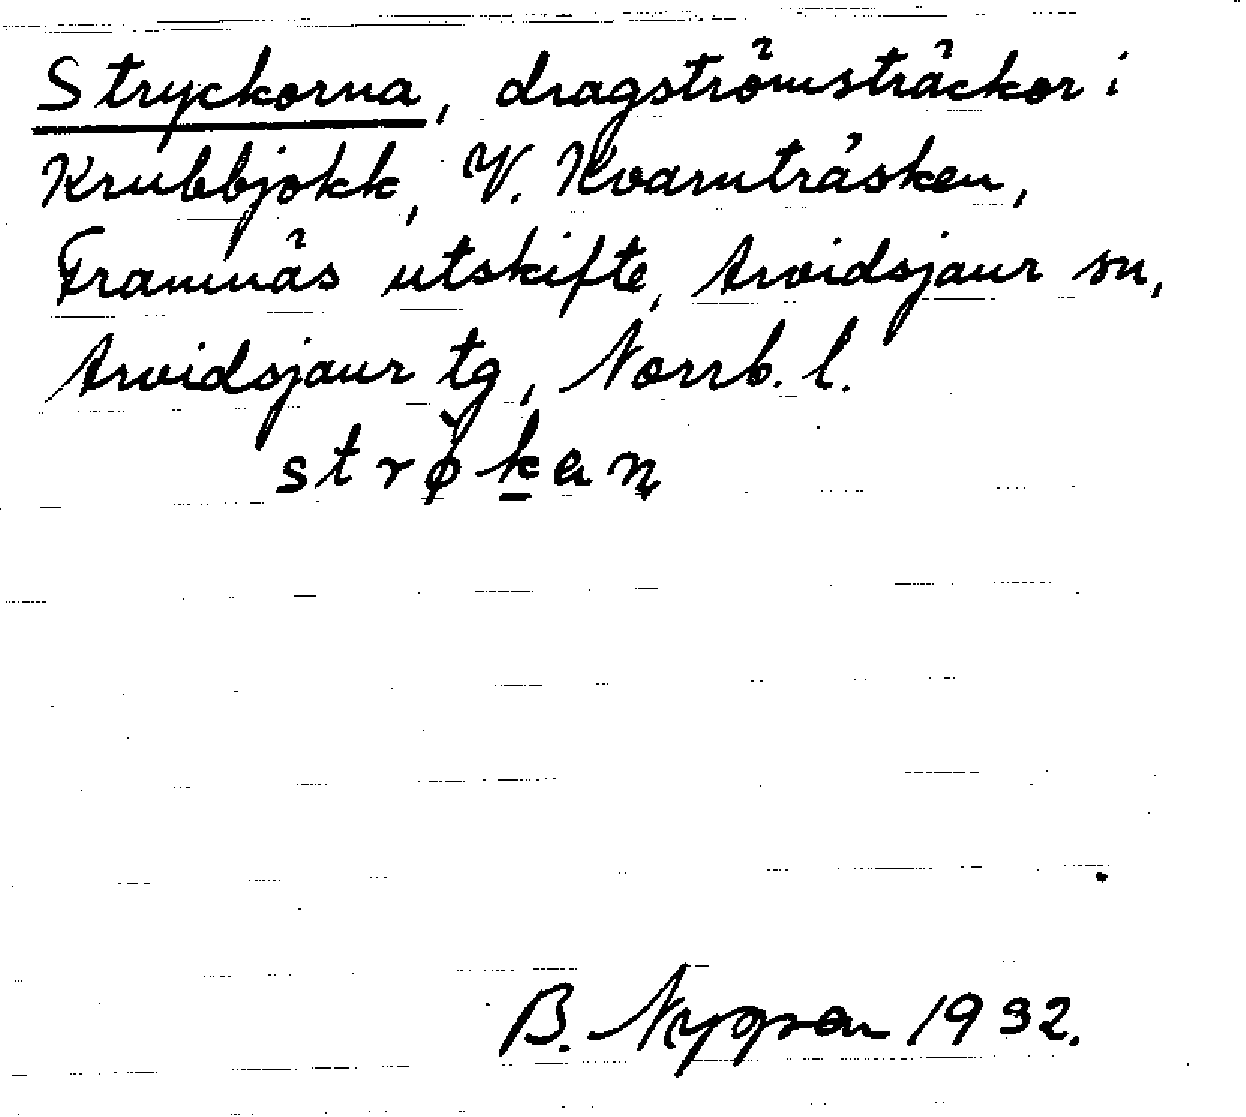 Stryckorna, dragströmsträckor i
Krubbjokk, V. Kvarnträsken,
Framnäs utskifte, Arvidsjaur sn,
Arvidsjaur tg, Norrb. l.
B. Nygren 1932.